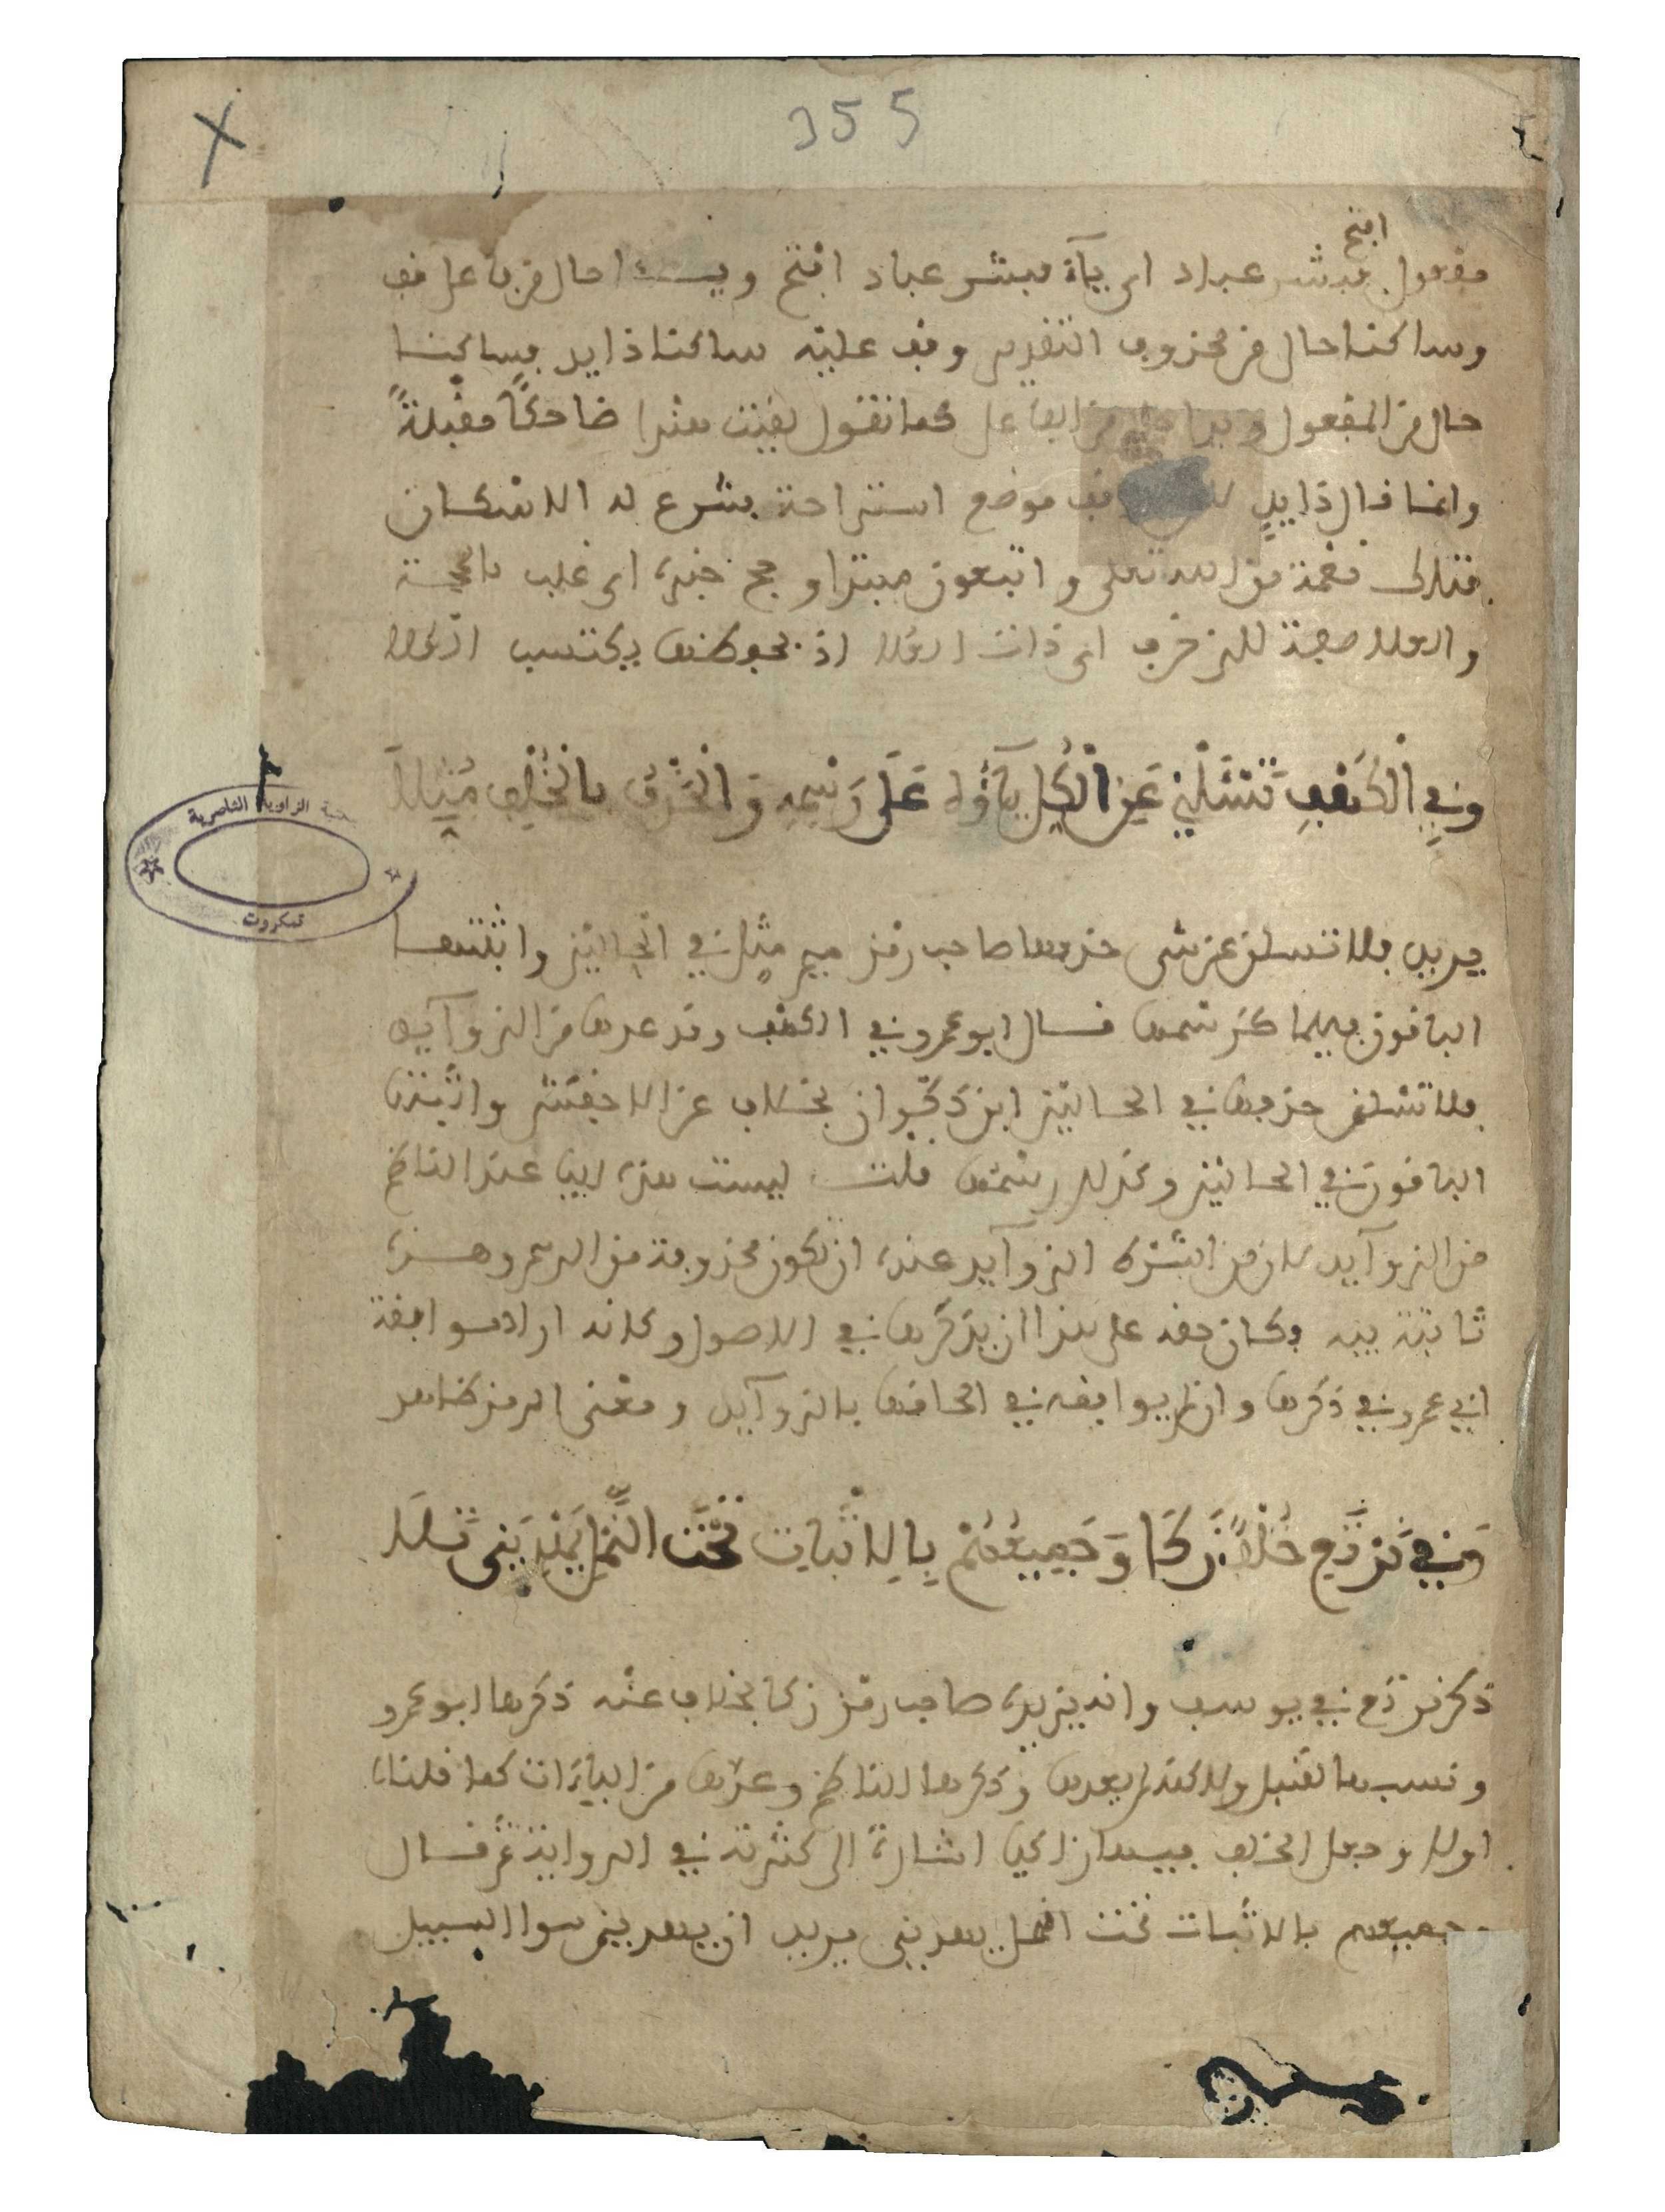 355
افتح
مفعول فبشر عباد اى ياء فبشر عباد افتح ويدا حال من فاعل قف
وساكنا حال من محذوف التقدير وقف عليه ساكنا ذا يد فساكنا
حال من المفعول ويدا حال من الفاعل كما تقول لقيت هندا ضاحكا مقبلة
وانما قال ذا يد موضع استراحة بشرع له الاسكان
من الله تعلى واتبعون مبتدا وحج خبره اى غلب بالحجة
والعلا صفة للزخرف اى ذات العلا اذ بحفظها يكتسب العلا
وَفِي الْكَهْفِ تَسْئَلْنِي عَنِ الْكُلِّ يَآؤُهُ عَلَى رَسْمِهِ وَالْحَذْفُ بِالْخُلْفِ مُثِّلَا
يريد فلا تسلن عن شى حذفها صاحب رمز ميم مثلا في الحالين واثبتها
الباقون فيهما كرسمها قال ابو عمرو في الكهف وقد عدها من الزوآيد
فلا تسئلنى حذفها في الحالين ابن ذكوان بخلاف عن الاخفش واثبتها
الباقون في الحالين وكذلك رسمها قلت ليست هذه اليا عند الناظم
من الزوآيد لان من شرط الزوآيد عنده ان تكون محذوفة من الرسم وهذه
ثابتة فيه وكان حقه على هذا ان يذكرها في الاصول وكانه اراد موافقة
ابي عمرو في ذكرها وان لم يوافقه في الحاقها بالزوآيد ومعنى الرمز ظاهر
وَفِي نَرْتَعِ خُلْفٌ زَكَا وَجَمِيعُهُمْ بِالِاثْبَاتِ تَحْتَ النَّمْلِ يَهْدِيَنِى تَلَا
ذكر نرتع في يوسف وانه يزيده صاحب رمز زكا بخلاف عنه ذكرها ابو عمرو
ونسبها لقنبل ولاكنه لم يعدها وذكرها الناظم وعدها من الياءات كما قلناه
اولا وجعل الخلف فيها زاكيا اشارة الى كثرته في الرواية ثم قال
وجميعهم بالاثبات تحت النمل يهدينى يريد ان يهدينى سوا السبيل
الزاوية الناصرية
تمكروت